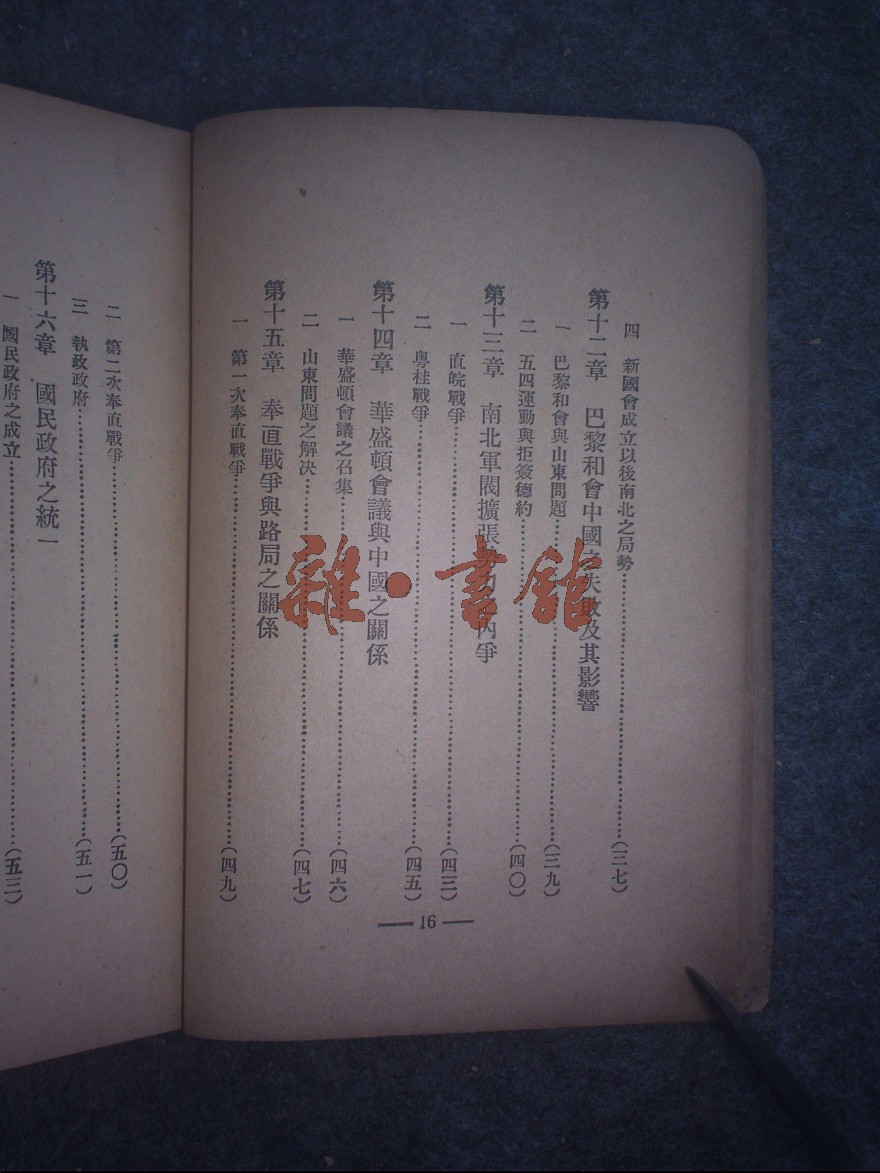 四 新國會成立以後南北之局勢……(三七)
第十二章 巴黎和會中國之失敗及其影響
一 巴黎和會與山東問題……(三九)
二 五四運動與拒簽德約……(四〇)
第十三章 南北軍閥擴張勢力之內爭
一 直皖戰爭……(四三)
二 粵桂戰爭……(四五)
第十四章 華盛頓會議與中國之關係
一 華盛頓會議之召集……(四六)
二 山東問題之解決……(四七)
第十五章 奉直戰爭與路局之關係
一 第一次奉直戰爭……(四九)
— 16 —
二 第二次奉直戰爭……(五〇)
三 執政政府……(五一)
第十六章 國民政府之統一
一 國民政府之成立……(五三)
雜·書館